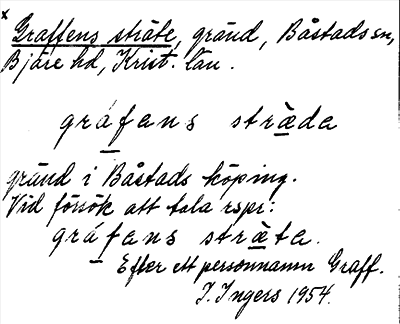 x
Graffens sträte, gränd, Båstads sn,
Bjäre hd, Krist. län.
gráfans stræ̀da
gränd i Båstads köping.
Vid försök att tala rspr:
gráfans stræ̀ta.
Efter ett personnamn Graff.
I. Ingers 1954.